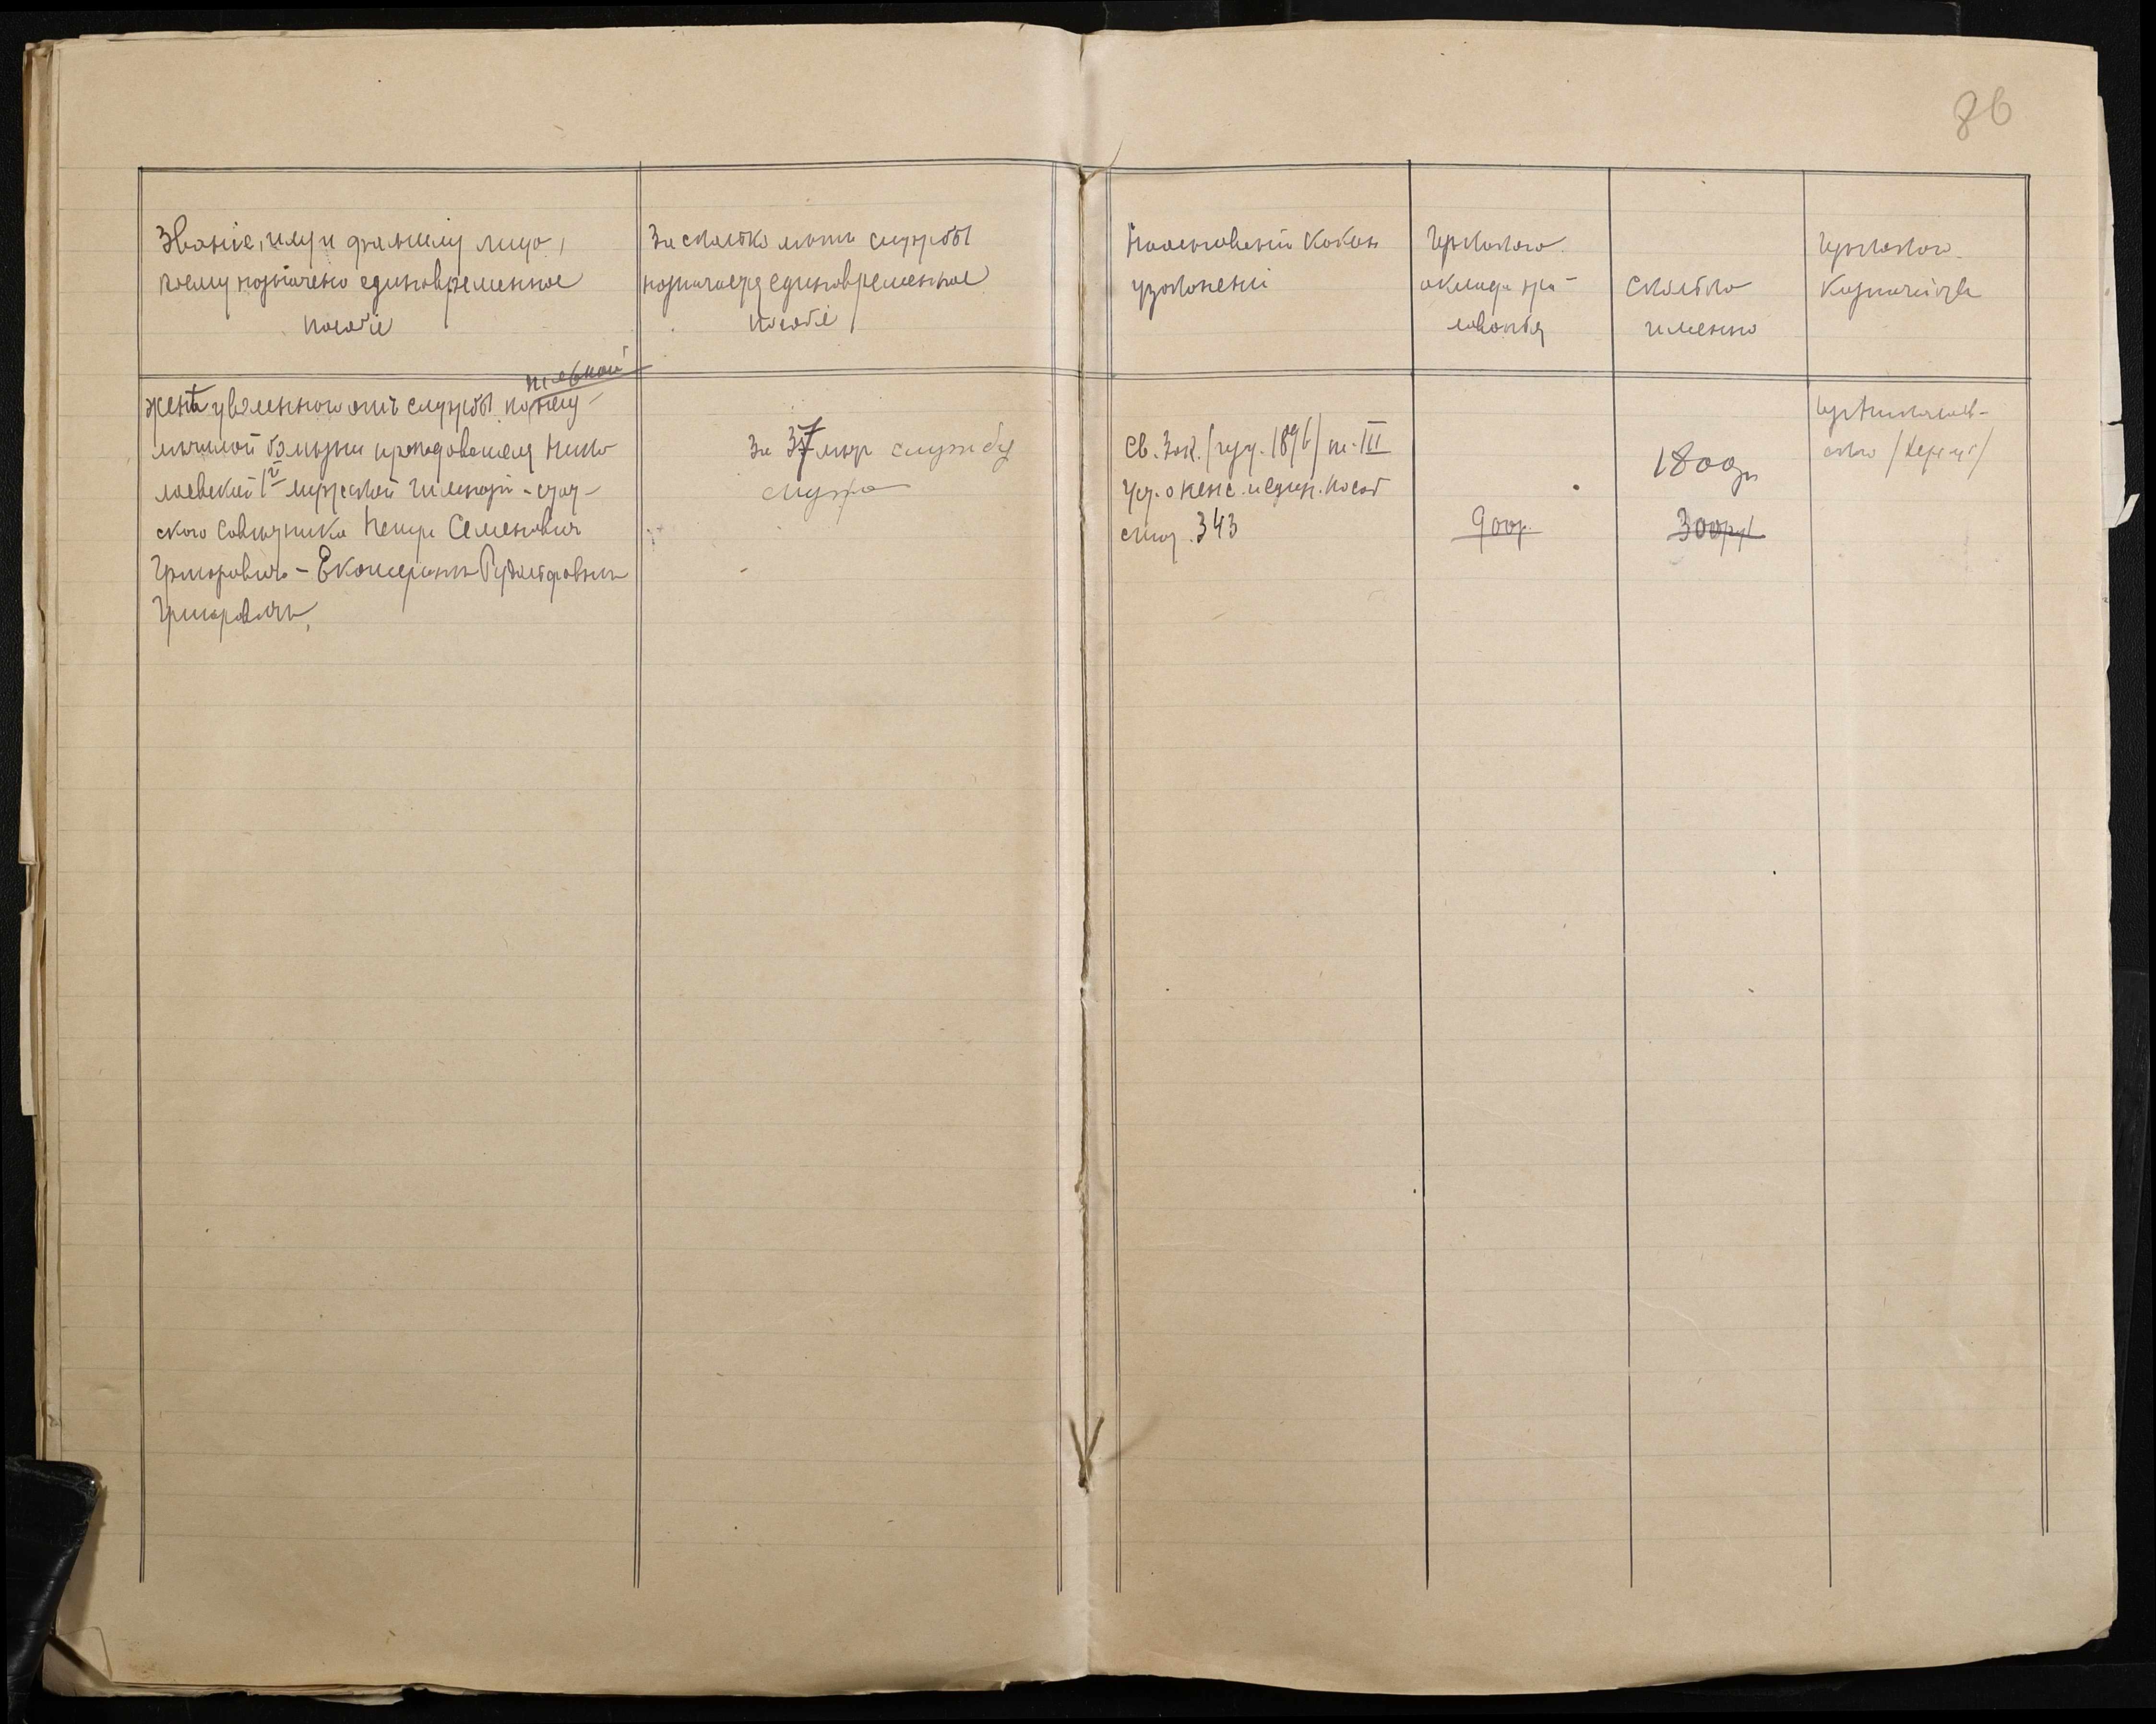 86
Званіе, имя и фамилія лица,
коему назначено единовременное
пособіе
За сколько лѣтъ службы
назначается единовременное
пособіе
На основаніи какихъ
узаконеній
Изъ какого
оклада жа-
лованья
Сколько
именно
Изъ какого
Казначейства
тяжкой
Женѣ уволеннаго отъ службы по неиз-
лѣчимой болѣзни преподавателя Нико-
лаевской 1й мужской гимназіи - стат-
скаго совѣтника Петра Семеновича
Григоровича - Екатеринѣ Рудольфовнѣ
Григоровичъ.
За 37 лѣт службу
мужа
Св. Зак. (изд. 1896) т. III
Уст. о пенс. и един. пособ
стат. 343
900р.
1800р
300руб
изъ Николаев-
скаго